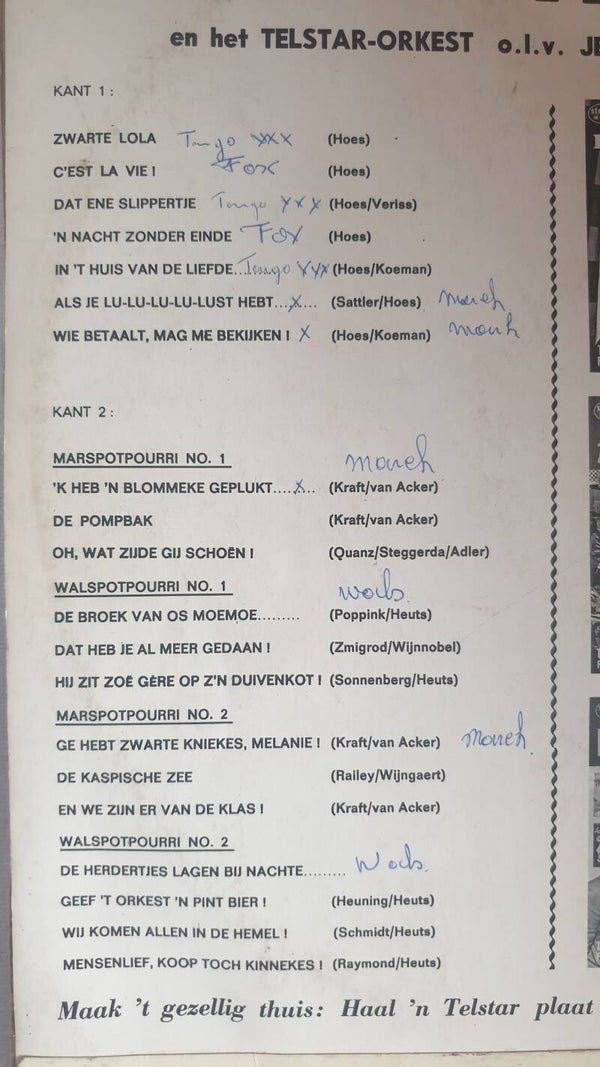 en het TELSTAR-ORKEST o.l.v. JE
KANT 1:
ZWARTE LOLA Tango xxx (Hoes)
C'EST LA VIE! Fox (Hoes)
DAT ENE SLIPPERTJE Tango xxx (Hoes/Veriss)
'N NACHT ZONDER EINDE Fox (Hoes)
IN 'T HUIS VAN DE LIEFDE... Tango xxx (Hoes/Koeman)
ALS JE LU-LU-LU-LU-LUST HEBT...x... (Sattler/Hoes) march
WIE BETAALT, MAG ME BEKIJKEN! x (Hoes/Koeman) march
KANT 2:
MARSPOTPOURRI NO. 1 march
'K HEB 'N BLOMMEKE GEPLUKT....x.. (Kraft/van Acker)
DE POMPBAK (Kraft/van Acker)
OH, WAT ZIJDE GIJ SCHOËN! (Quanz/Steggerda/Adler)
WALSPOTPOURRI NO. 1 wals
DE BROEK VAN OS MOEMOE......... (Poppink/Heuts)
DAT HEB JE AL MEER GEDAAN! (Zmigrod/Wijnnobel)
HIJ ZIT ZOË GÈRE OP Z'N DUIVENKOT! (Sonnenberg/Heuts)
MARSPOTPOURRI NO. 2
GE HEBT ZWARTE KNIEKES, MELANIE! (Kraft/van Acker) march
DE KASPISCHE ZEE (Railey/Wijngaert)
EN WE ZIJN ER VAN DE KLAS! (Kraft/van Acker)
WALSPOTPOURRI NO. 2
DE HERDERTJES LAGEN BIJ NACHTE......... Wals
GEEF 'T ORKEST 'N PINT BIER! (Heuning/Heuts)
WIJ KOMEN ALLEN IN DE HEMEL! (Schmidt/Heuts)
MENSENLIEF, KOOP TOCH KINNEKES! (Raymond/Heuts)
Maak 't gezellig thuis: Haal 'n Telstar plaat